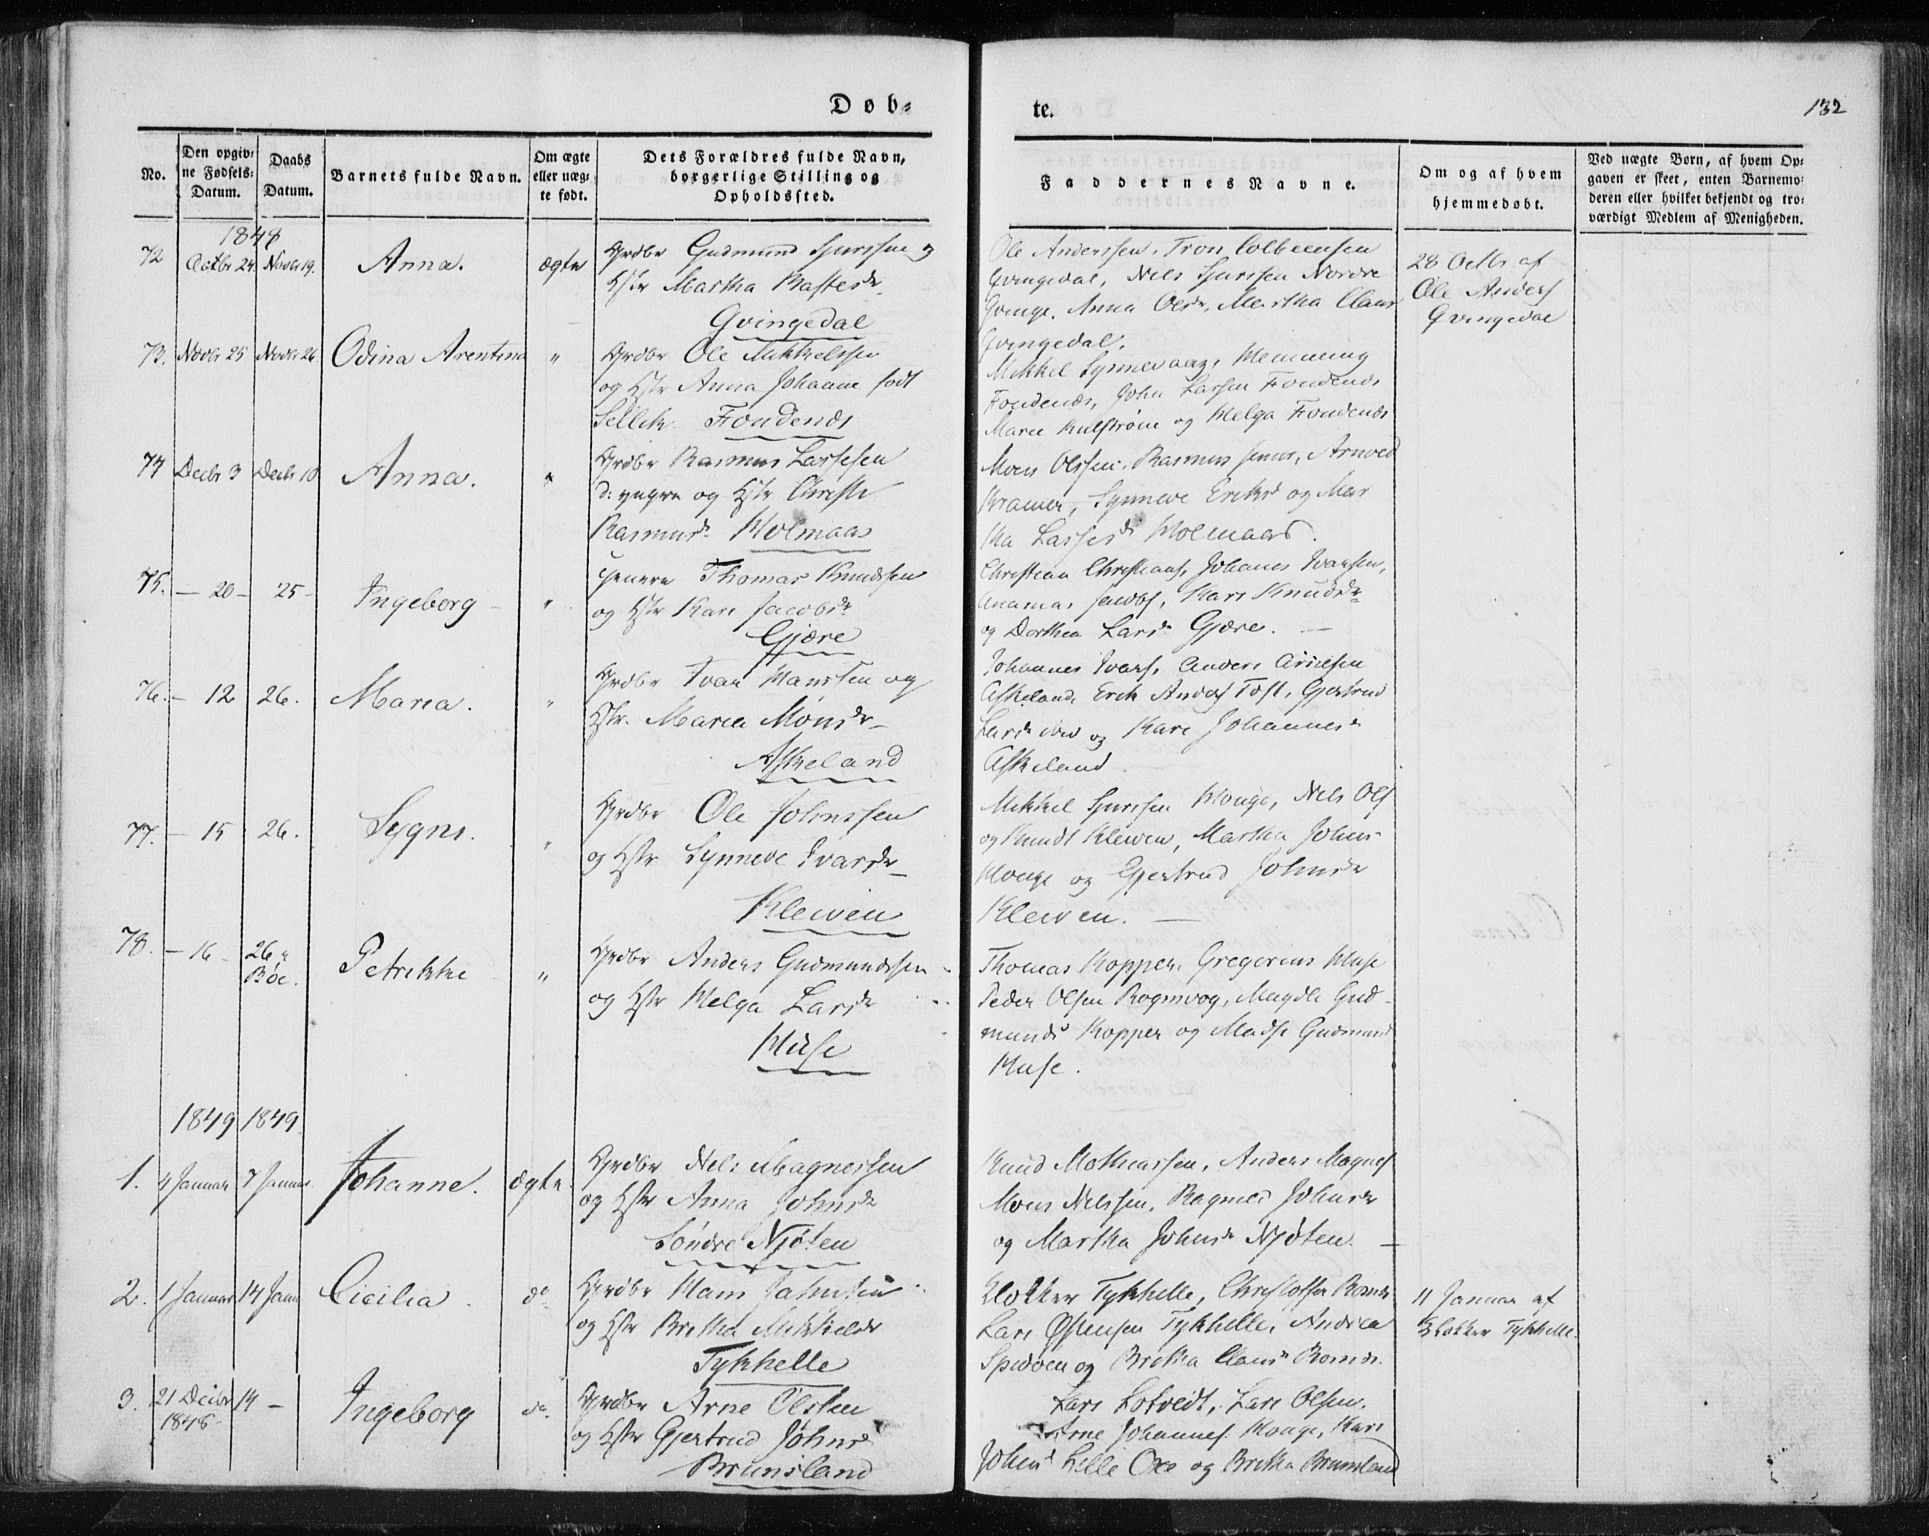 Døb-
te.
132
No.
Den opgiv-
ne Fødsels-
Datum.
Daabs
Datum.
Barnets fulde Navn.
Om ægte
eller uæg-
te født.
Dets Forældres fulde Navn,
borgerlige Stilling og
Opholdssted.
Faddernes Navne.
Om og af hvem
hjemmedøbt.
Ved uægte Børn, af hvem Op-
gaven er skeet, enten Barnemo-
deren eller hvilket bekjendt og tro-
værdigt Medlem af Menigheden.
1848
72
Octbr 24.
Novbr 19.
Anna.
ægte
Grdbr Gudmund Sjurssen og
Hstr Martha
Gvingedal
Ole Anderssen, Tron
Gvingedal, Nels Sjurssen Nordre
Gvinge, Anna Olsdr, Martha Claus
Gvingedal.
28 Octbr af
Ole Anders
Gvingedal
73.
Novbr 25
Novbr 26.
Odina Arentina
"
Grdbr Ole Mikkelssen
og Hstr Anna Johanne født
Sellik Fondenes
Mikkel Synnevaag, Henning
Fondenes, John Larsen Fondenes
Maria Kulstrøm og Helga Fondenes
74
Decbr 3
Decbr 10
Anna.
"
Grdbr Rasmus Lassesen
d: yngre og Hstr Christi
Rasmusdr Holmaas
Mons Olssen, Rasmus senior, Arnved
Kramer, Synneve Eriksd og Mar
tha Lassesdr Holmaas.
75.
- 20 -
25 -
Ingeborg -
"
Thomas Knudssen
og Hstr Kari Jacobsdr
Gjære
Christian Christians, Johanes Ivarsen,
Jacobs, Kari Knudsdr
og Dorthea Larsdr Gjære. -
76. -
12
26.
Maria.
"
Grdbr Ivar Hanssen og
Hstr. Maria Monsdr -
Askeland
Johannes Ivars, Anders Arnesen
Askeland, Erik Anders Toft, Gjertrud
Larsdr ibid og Kari Johannesd
Askeland.
77. -
15
26.
Sygni.
"
Grdbr Ole Johnssen
og Hstr Synneve Ivarsdr -
Klewen
Mikkel Sjurssen Houge, Nels Ols
og Knudt Klewen, Martha Johns
Houge og Gjertrud Johnsdr
Klewen. -
78.
- 16 -
26 i
Bøe.
Petrikke
"
Grdbr Anders Gudmundssen
og Hstr Helga Larsdr
Huse
Thomas Kopper, Gregorius Huse
Peder Olsen Rognvog, Magdli Gud-
munds Kopper og Madse Gudmund
Huse.
1849
1849.
1.
4 Januar
7 Januar
Johanne.
ægte.
Grdbr Nels Magnessen
og Hstr Anna Johnsdr
Søndre Njøten
Knud Mathiassen, Anders Magnes
Mons Nelssen, Ragnild Johnsdr
og Martha Johnsdr Njøten. -
2.
1 Januar
14 Janu
Cicilia.
do
Grdbr Hans Johnsen
og Hstr Britha Mikkelsdr
Tykhelle
Klokker Tykhelle, Christoffer
Lars Østensen Tykhelle, Andrea
og Britha Clausdr
11 Januar af
Klokker Tykhelle.
3.
21 Decbr
1848
14 -
Ingeborg
do.
Grdbr Arne Olssen
og Hstr Gjertrud Johnsd
Brunsland
Lars Lotvedt, Lars Olsen.
Arne Johannes Houge, Kari
Johnsd Lille Oxe og Britha Brunsland